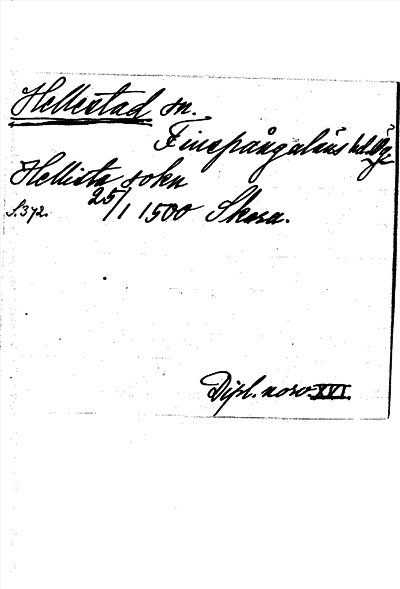 Hellestad sn.
Finspångaläns hd. Ög.
Hellista sokn
25/1 1500 Skara.
S. 372.
Dipl. norv. XVI.